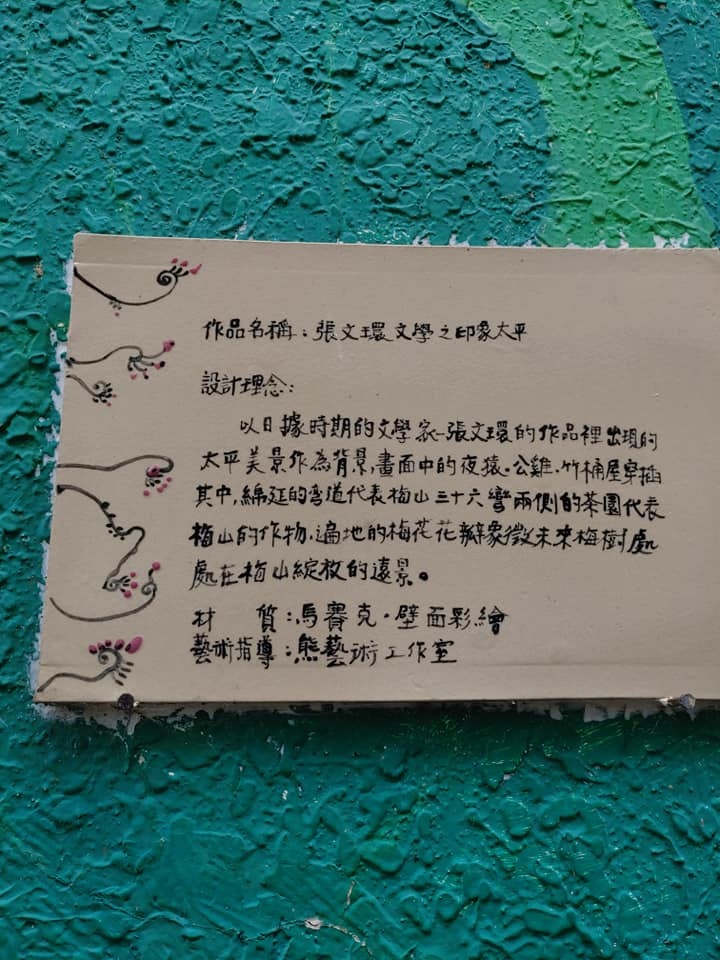 作品名稱：張文環文學之印象太平
設計理念：
以日據時期的文學家-張文環的作品裡出現的
太平美景作為背景,畫面中的夜猿、公雞、竹桶屋穿插
其中,綿延的彎道代表梅山三十六彎兩側的茶園代表
梅山的作物,遍地的梅花花瓣象徵未來梅樹處
處在梅山綻放的遠景。
材　質：馬賽克、壁面彩繪
藝術指導：熊藝術工作室